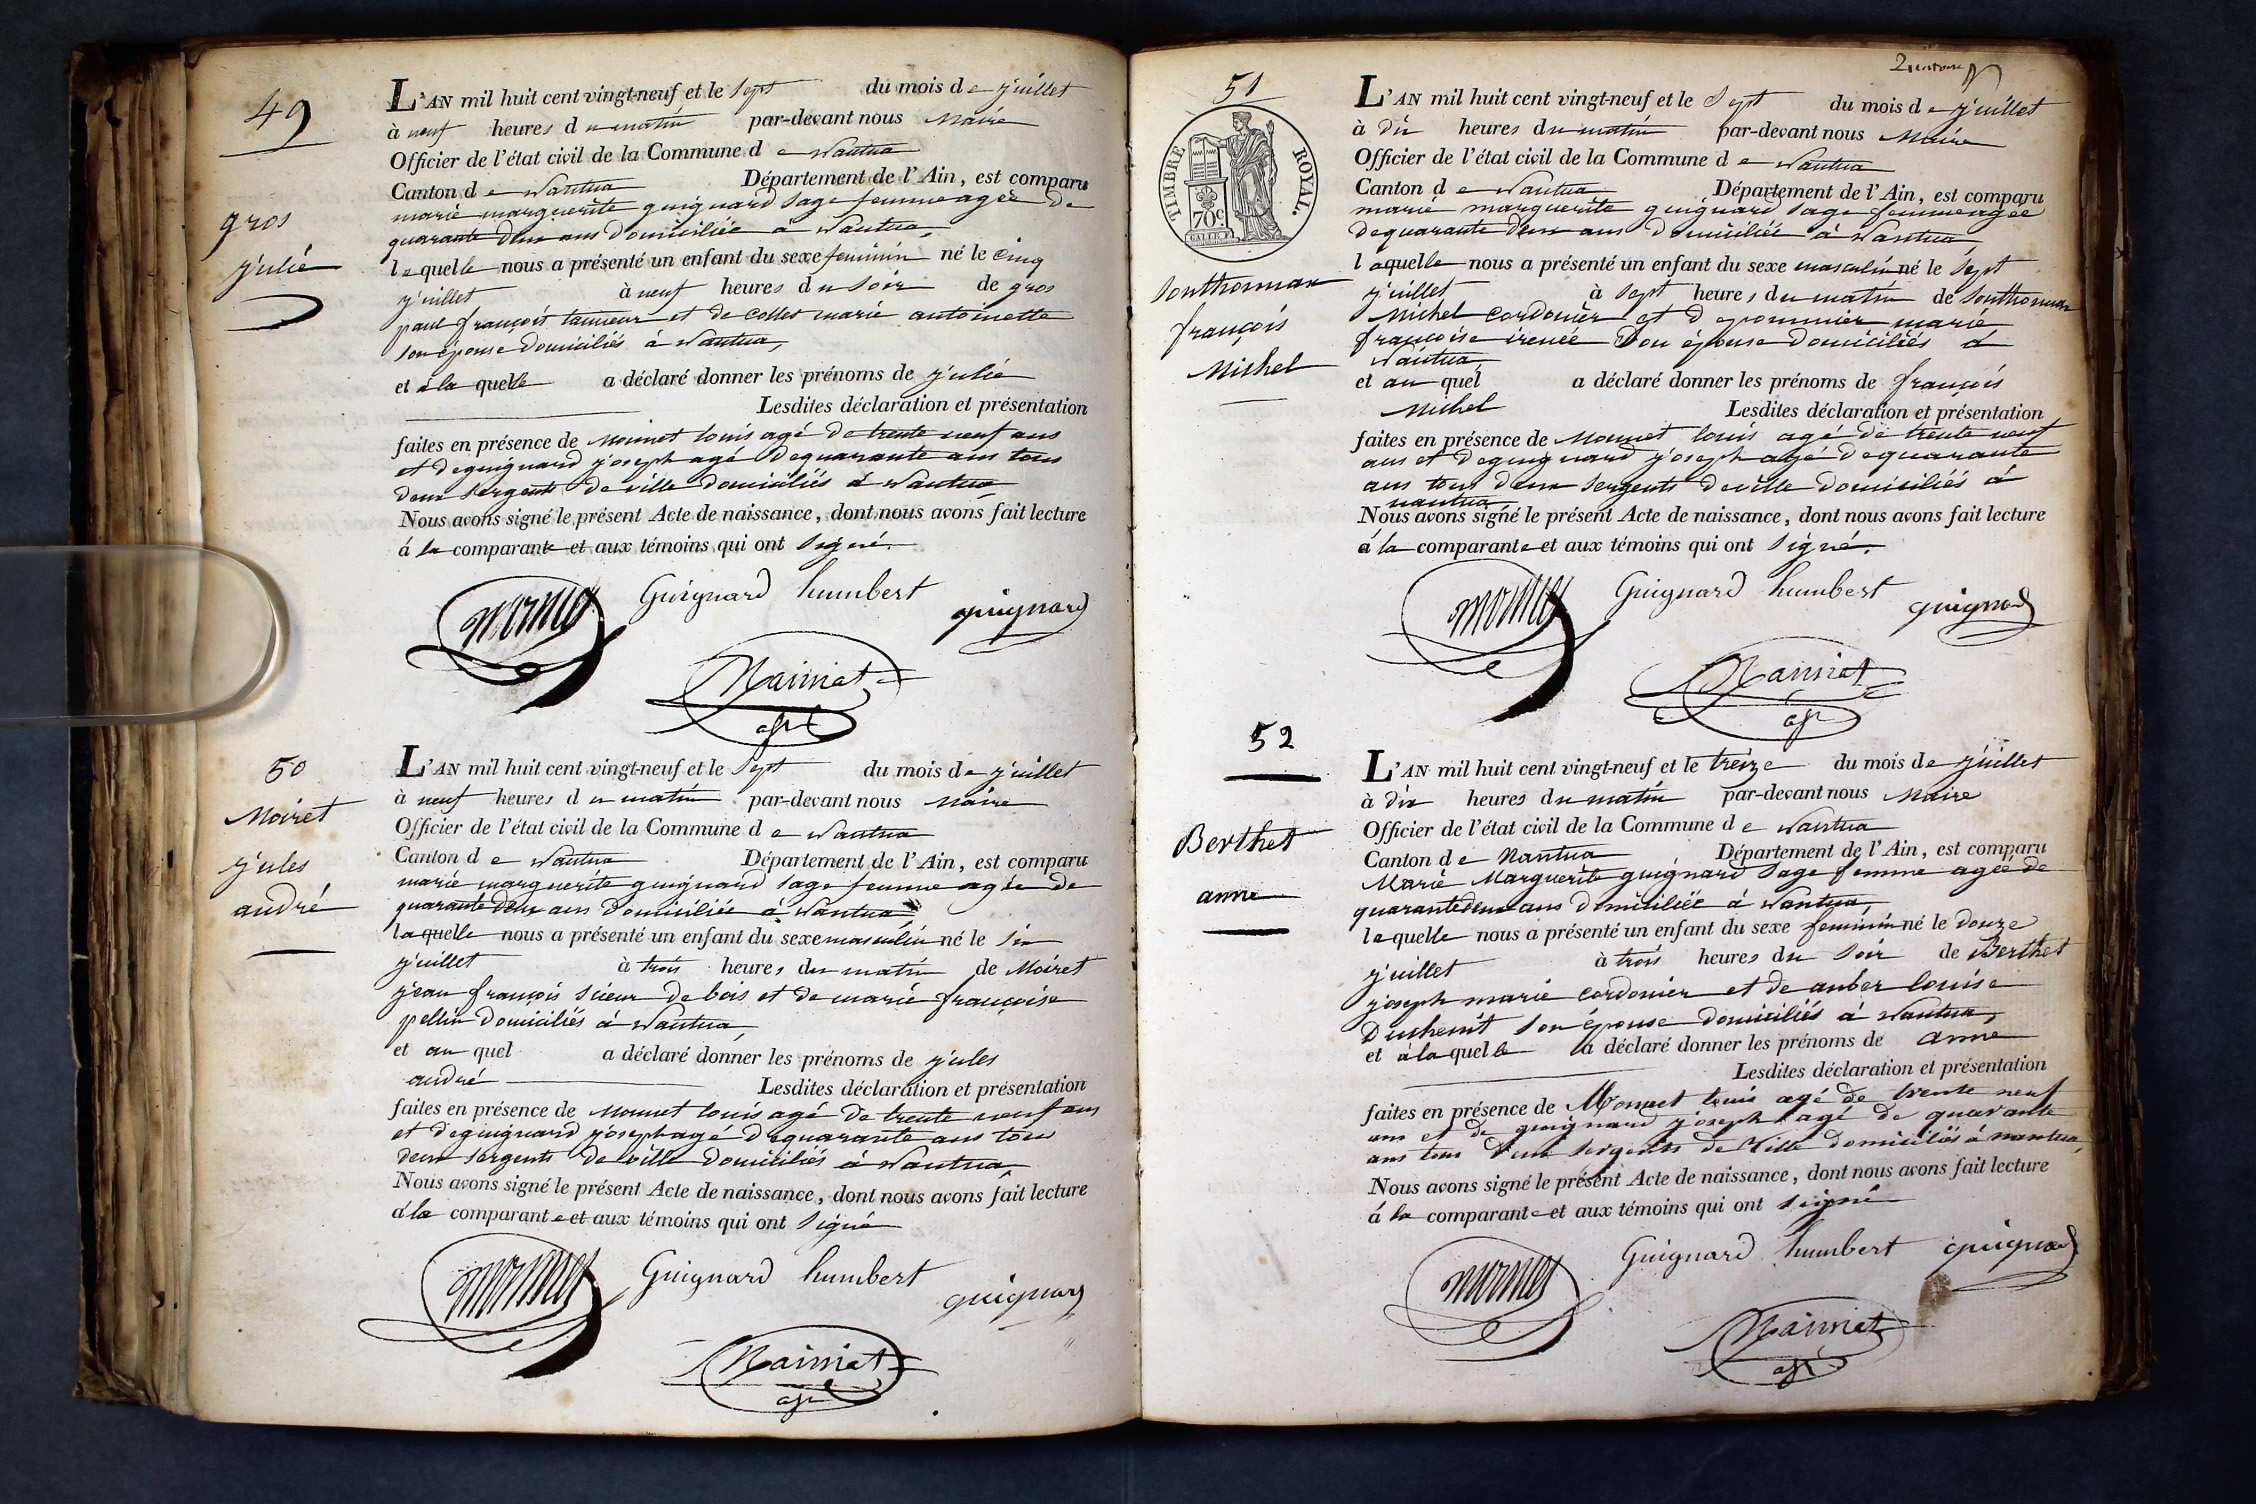 49
gros
julie
L'AN mil huit cent vingt-neuf et le sept du mois de juillet
à neuf heures du matin par-devant nous Maire
Officier de l'état civil de la Commune de Nantua
Canton de Nantua Département de l'Ain, est comparu
marie marguerite guignard sage femme agée de
quarante deux ans domiciliée à Nantua,
laquelle nous a présenté un enfant du sexe feminin né le cinq
juillet à neuf heures du soir de gros
paul françois tanneur et de collet marie antoinette
son épouse domiciliés à Nantua,
et à la quelle a déclaré donner les prénoms de julie
Lesdites déclaration et présentation
faites en présence de monnet louis agé de trente neuf ans
et de guignard joseph agé de quarante ans tous
deux sergents de ville domiciliés à Nantua
Nous avons signé le présent Acte de naissance, dont nous avons fait lecture
à la comparante et aux témoins qui ont signé.
monnet Guignard humbert guignard
50
Moiret
jules
andré
L'AN mil huit cent vingt-neuf et le sept du mois de juillet
à neuf heures du matin par-devant nous Maire
Officier de l'état civil de la Commune de Nantua
Canton de Nantua Département de l'Ain, est comparu
marie marguerite guignard sage femme agée de
quarante deux ans domiciliée à Nantua,
laquelle nous a présenté un enfant du sexe masculin né le six
juillet à trois heures du matin de Moiret
jean françois scieur de bois et de marie françoise
pellin domiciliés à Nantua,
et au quel a déclaré donner les prénoms de jules
andré Lesdites déclaration et présentation
faites en présence de monnet louis agé de trente neuf ans
et de guignard joseph agé de quarante ans tous
deux sergents de ville domiciliés à Nantua,
Nous avons signé le présent Acte de naissance, dont nous avons fait lecture
à la comparante et aux témoins qui ont signé
monnet Guignard humbert guignard
51
TIMBRE ROYAL.
70c.
Sonthonnax
françois
Michel
L'AN mil huit cent vingt-neuf et le Sept du mois de juillet
à dix heures du matin par-devant nous Maire
Officier de l'état civil de la Commune de Nantua
Canton de Nantua Département de l'Ain, est comparu
marie marguerite guignard sage femme agée
de quarante deux ans domiciliée à Nantua,
laquelle nous a présenté un enfant du sexe masculin né le sept
juillet à sept heures du matin de Sonthonnax
Michel cordonier et de pommier marie
françoise irenée son épouse domiciliés à
Nantua
et au quel a déclaré donner les prénoms de françois
Michel Lesdites déclaration et présentation
faites en présence de Monnet louis agé de trente neuf
ans et de guignard joseph agé de quarante
ans tous deux sergents de ville domiciliés à
nantua
Nous avons signé le présent Acte de naissance, dont nous avons fait lecture
à la comparante et aux témoins qui ont signé.
monnet Guignard humbert guignard
52
Berthet
anne
L'AN mil huit cent vingt-neuf et le treize du mois de juillet
à dix heures du matin par-devant nous Maire
Officier de l'état civil de la Commune de Nantua
Canton de Nantua Département de l'Ain, est comparu
Marie Marguerite guignard sage femme agée de
quarante deux ans domiciliée à Nantua,
laquelle nous a présenté un enfant du sexe feminin né le douze
juillet à trois heures du soir de Berthet
joseph marie cordonier et de auber louise
son épouse domiciliés à Nantua,
et à la quelle a déclaré donner les prénoms de anne
Lesdites déclaration et présentation
faites en présence de Monnet louis agé de trente neuf
ans et de guignard joseph agé de quarante
ans tous deux sergents de Ville domiciliés à nantua,
Nous avons signé le présent Acte de naissance, dont nous avons fait lecture
à la comparante et aux témoins qui ont signé
monnet Guignard humbert guignard